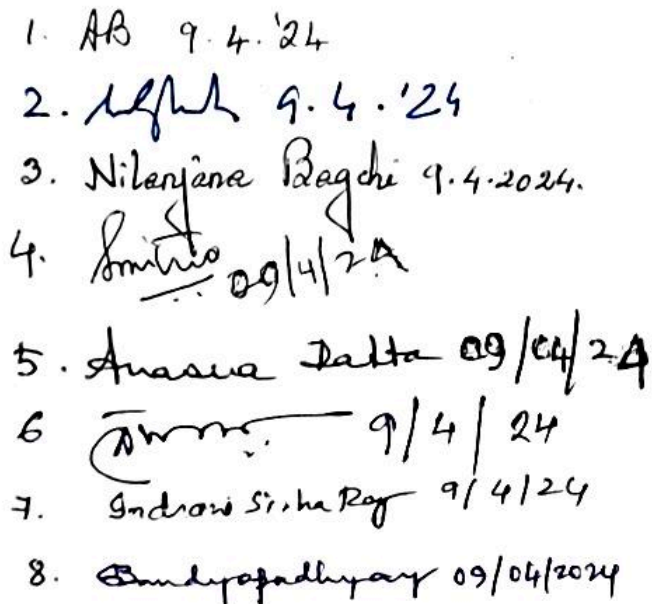 1. AB 9.4.'24
2. 9.4.'24
3. Nilanjana Bagchi 9.4.2024.
4. 09/4/24
5. Anasua Datta 09/04/24
6 9/4/24
7. Indrani Sinha Ray 9/4/24
8. Bandyopadhyay 09/04/2024